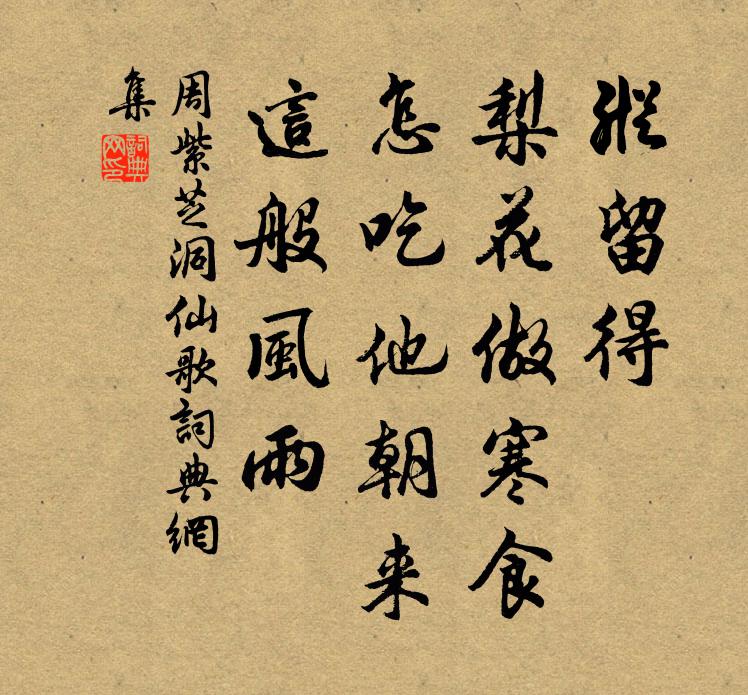 縱留得
梨花做寒食
怎吃他朝来
這般風雨
周紫芝洞仙歌詞典網
集
詞典
网印